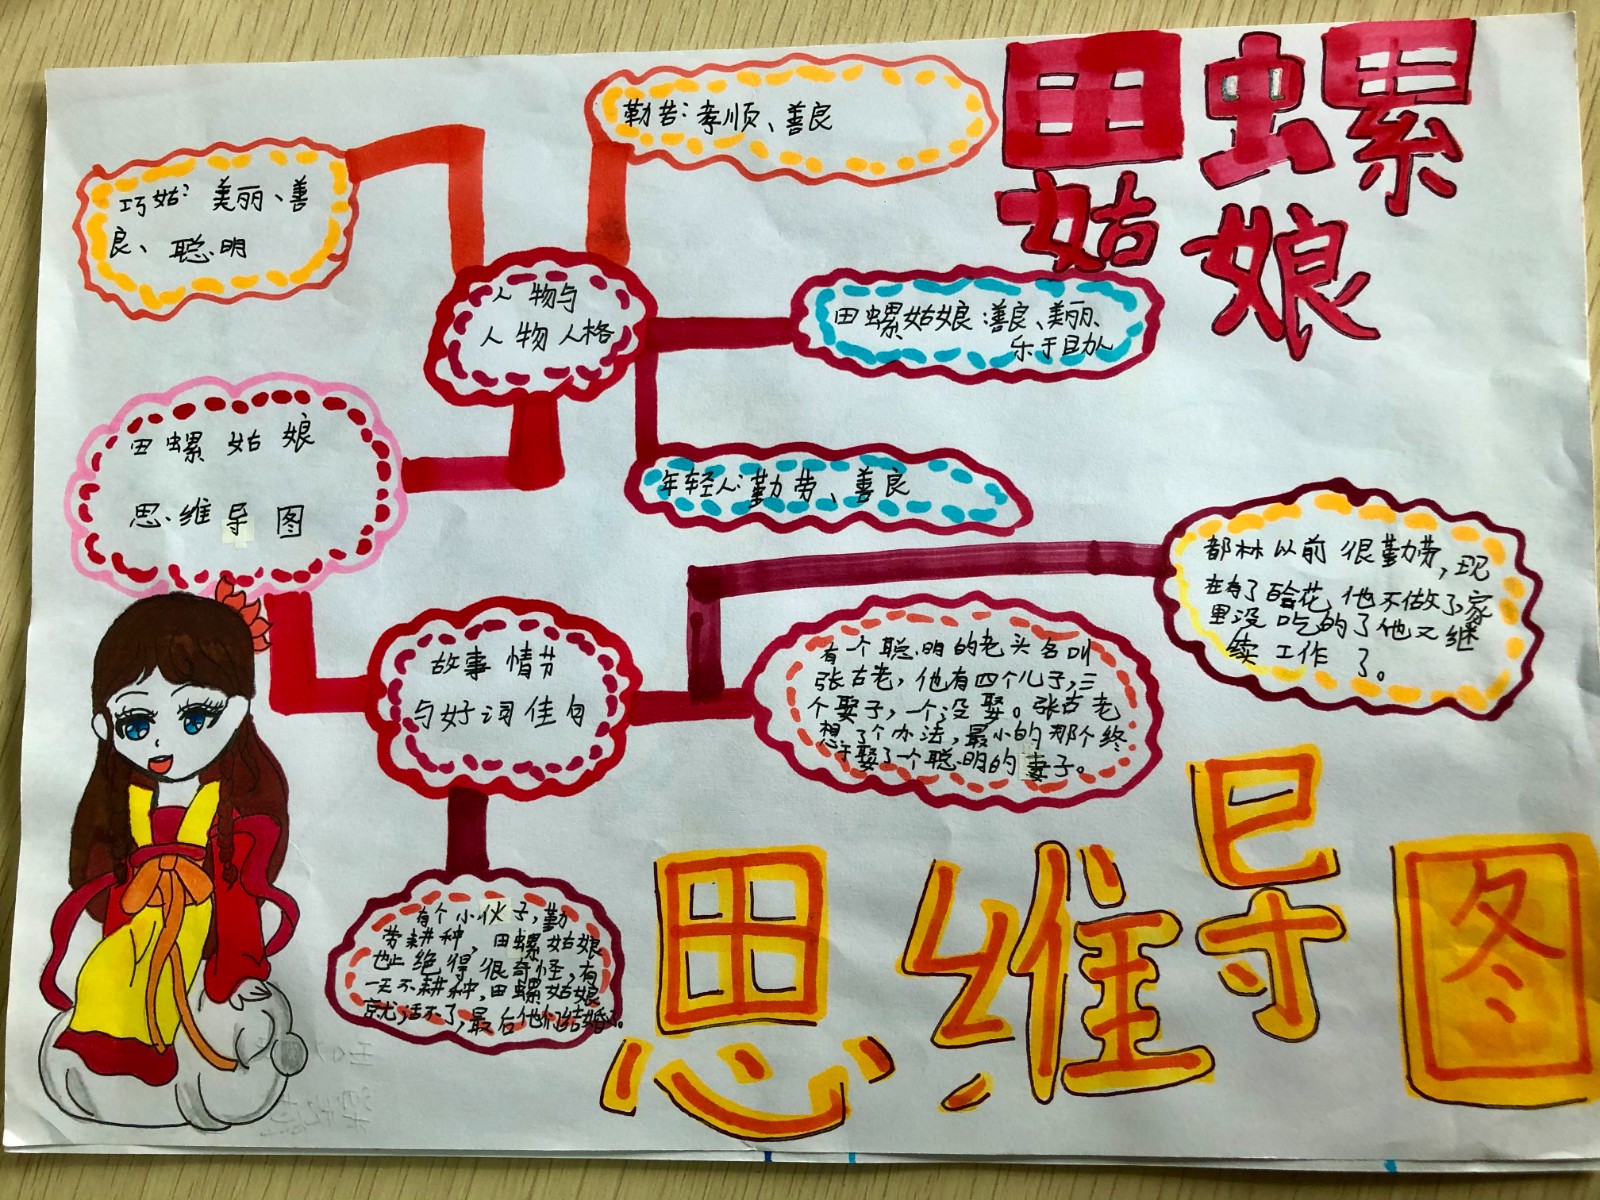 田螺
姑娘
勤劳:孝顺、善良
巧姑:美丽、善
良、聪明
人物与
人物人格
田螺姑娘:善良、美丽、
乐于助人
年轻人:勤劳、善良
田螺姑娘
思维导图
都林以前很勤劳,现
在有了哈花,他不做了,家
里没吃的了他又继
续工作了。
故事情节
与好词佳句
有个聪明的老头名叫
张古老,他有四个儿子,三
个娶子,一个没娶。张古老
想了个办法,最小的那个终
于娶了一个聪明的妻子。
有个小伙子,勤
劳耕种,田螺姑娘
也上绝得很奇怪,有
一天不耕种,田螺姑娘
就活不了,最后他们结婚了。
思维导图